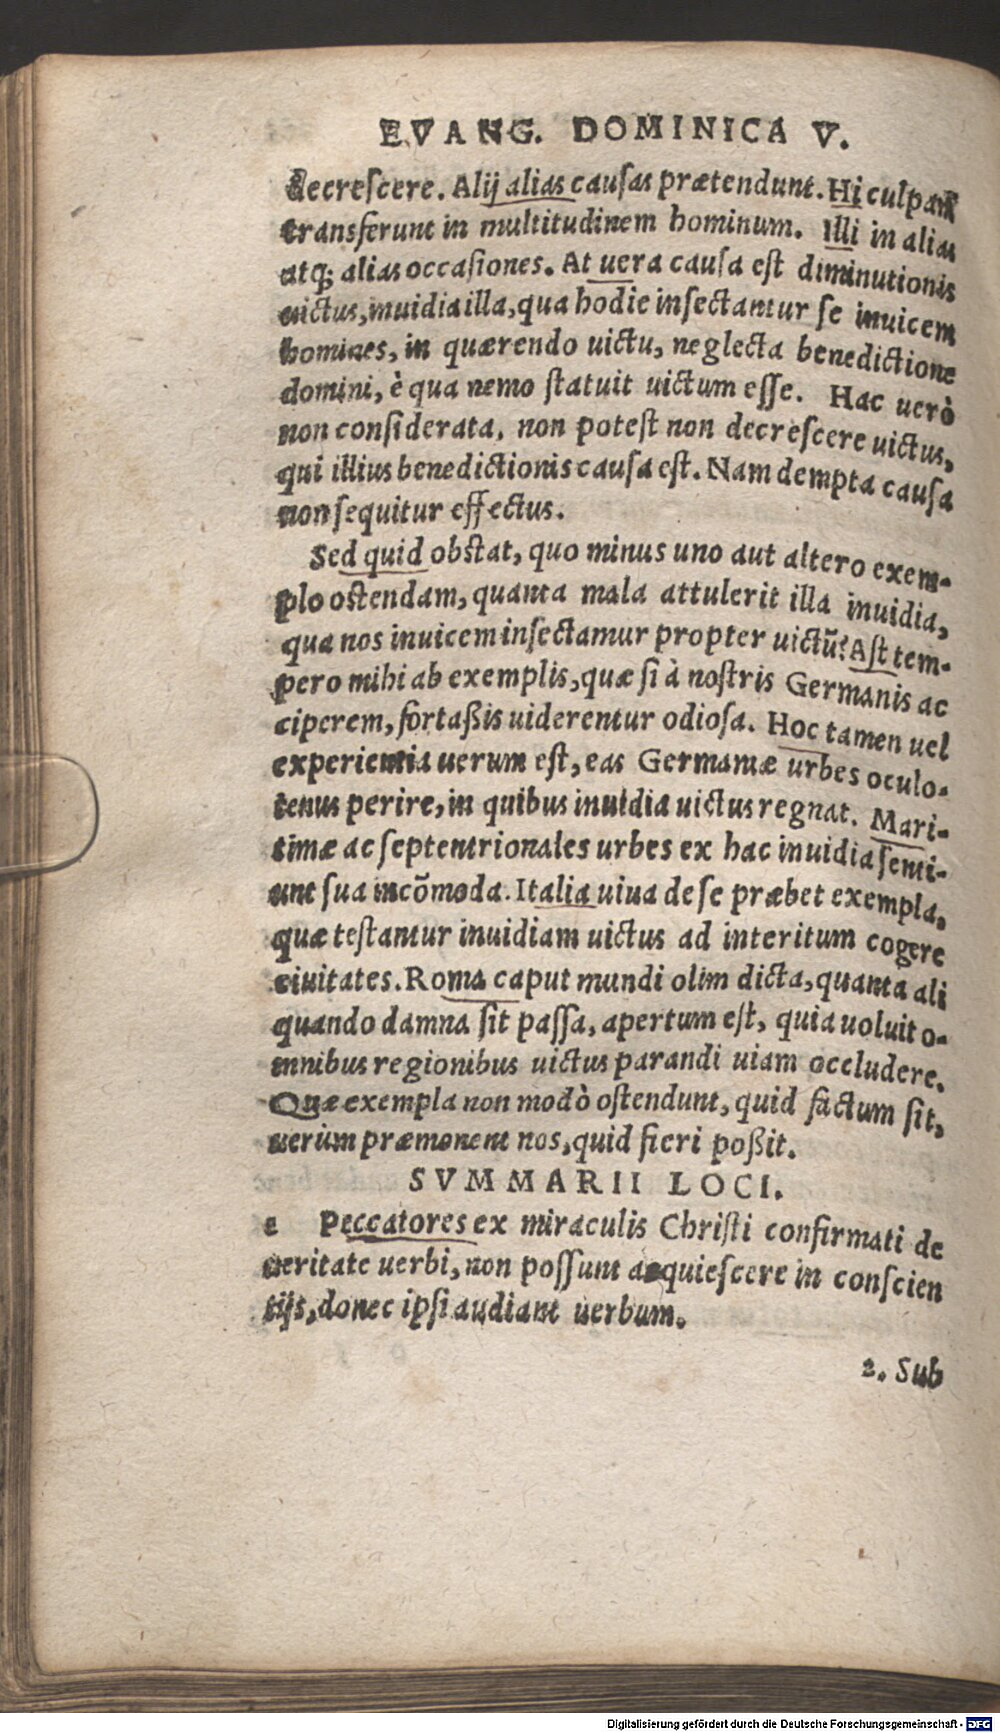 EVANG. DOMINICA V.
decrescere. Alij alias causas prætendunt. Hi culpam
transferunt in multitudinem hominum. Illi in alias
atq; alias occasiones. At uera causa est diminutionis
uictus, inuidia illa, qua hodie insectantur se inuicem
homines, in quærendo uictu, neglecta benedictione
domini, è qua nemo statuit uictum esse. Hac uerò
non considerata, non potest non decrescere uictus,
qui illius benedictionis causa est. Nam dempta causa
non sequitur effectus.
Sed quid obstat, quo minus uno aut altero exem-
plo ostendam, quanta mala attulerit illa inuidia,
qua nos inuicem insectamur propter uictũ? Ast tem-
pero mihi ab exemplis, quæ si à nostris Germanis ac
ciperem, fortaßis uiderentur odiosa. Hoc tamen uel
experientia uerum est, eas Germaniæ urbes oculo-
tenus perire, in quibus inuidia uictus regnat. Mari-
timæ ac septentrionales urbes ex hac inuidia senti-
unt sua incõmoda. Italia uiua de se præbet exempla,
quæ testantur inuidiam uictus ad interitum cogere
ciuitates. Roma caput mundi olim dicta, quanta ali
quando damna sit passa, apertum est, quia uoluit o-
mnibus regionibus uictus parandi uiam occludere.
Quæ exempla non modò ostendunt, quid factum sit,
uerùm præmonent nos, quid fieri poßit.
SVMMARII LOCI.
Peccatores ex miraculis Christi confirmati de
ueritate uerbi, non possunt acquiescere in conscien
tijs, donec ipsi audiant uerbum.
2. Sub
Digitalisierung gefördert durch die Deutsche Forschungsgemeinschaft - DFG